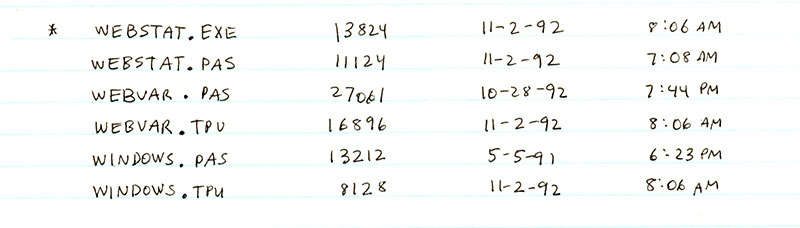 * WEBSTAT.EXE 13824 11-2-92 8:06 AM
WEBSTAT.PAS 11124 11-2-92 7:08 AM
WEBVAR.PAS 27061 10-28-92 7:44 PM
WEBVAR.TPU 16896 11-2-92 8:06 AM
WINDOWS.PAS 13212 5-5-91 6:23 PM
WINDOWS.TPU 8128 11-2-92 8:06 AM